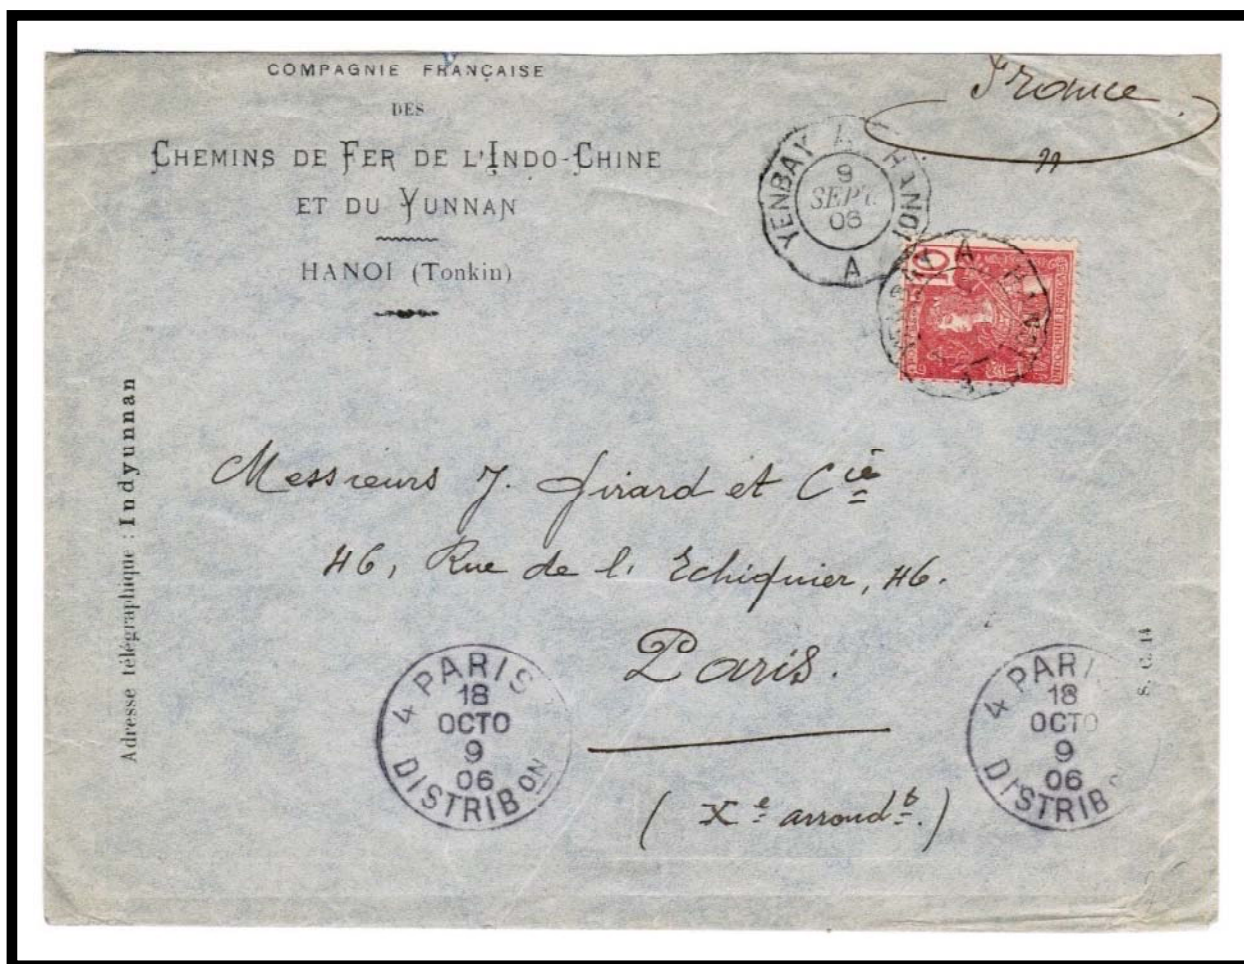 COMPAGNIE FRANÇAISE
DES
CHEMINS DE FER DE L'INDO-CHINE
ET DU YUNNAN
HANOÏ (Tonkin)
France
YENBAY A HANOI
9
SEPT.
06
A
10
INDO-CHINE FRANÇAISE
Adresse télégraphique : Indyunnan
Messieurs J. Girard et Cie
46, Rue de l'Echiquier, 46.
Paris.
(Xe arrondt.)
4 PARIS
18
OCTO
9
06
DISTRIBON
4 PARI
18
OCTO
9
06
DISTRIB
S. C. 14